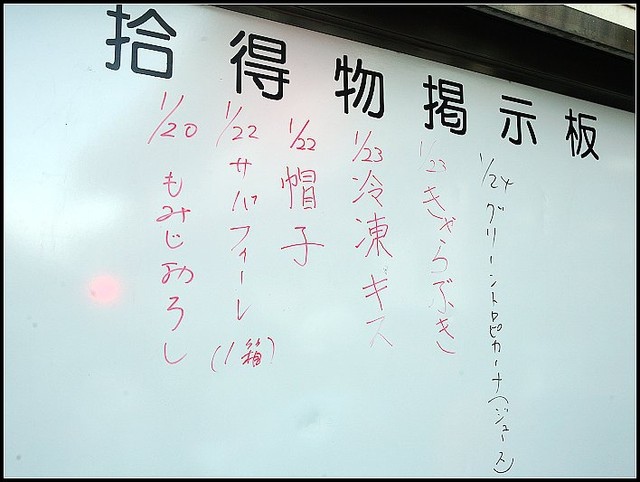 拾得物掲示板
1/20 もみじおろし
1/22 サバフィーレ(1箱)
1/22 帽子
1/23 冷凍ギス
1/23 きゃらぶき
1/24 グリーントロピカーナ(ジュース)